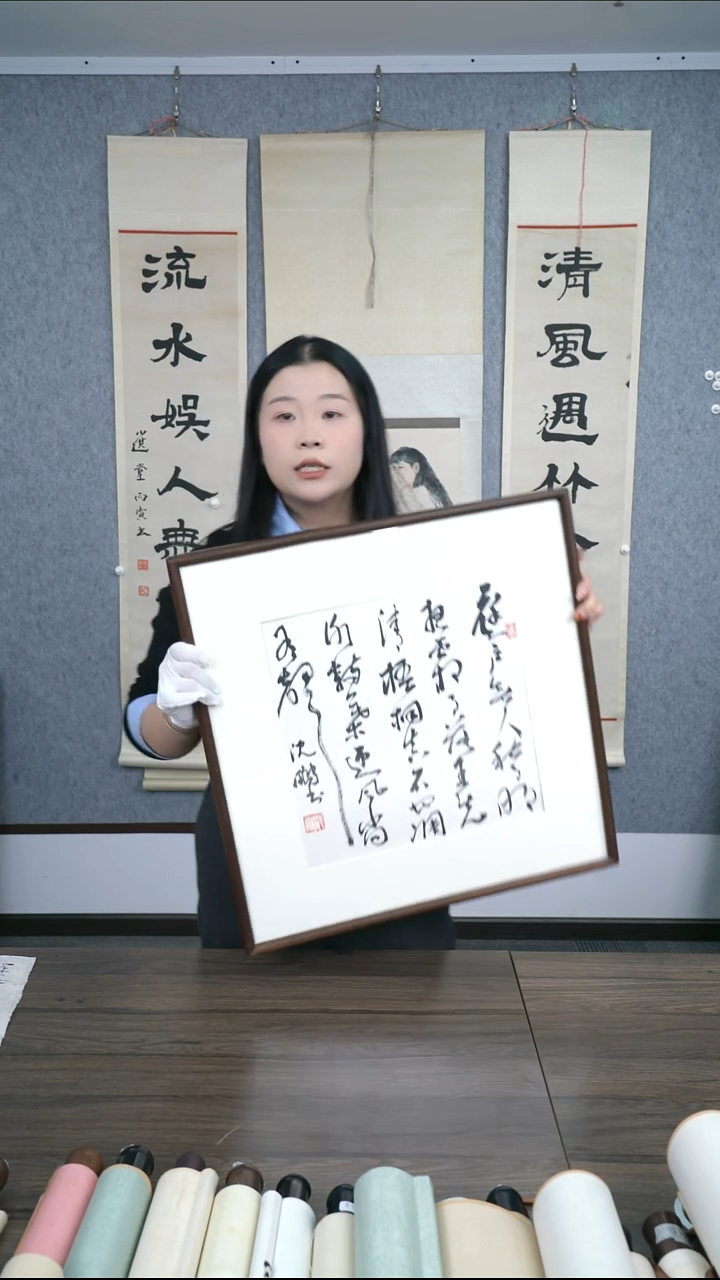 清風過竹
流水娱人無
選堂丙寅書
庭户無人秋月明
夜霜欲落氣先
清梧桐真不甘凋
謝數葉迎風尚
有聲
沈鵬书